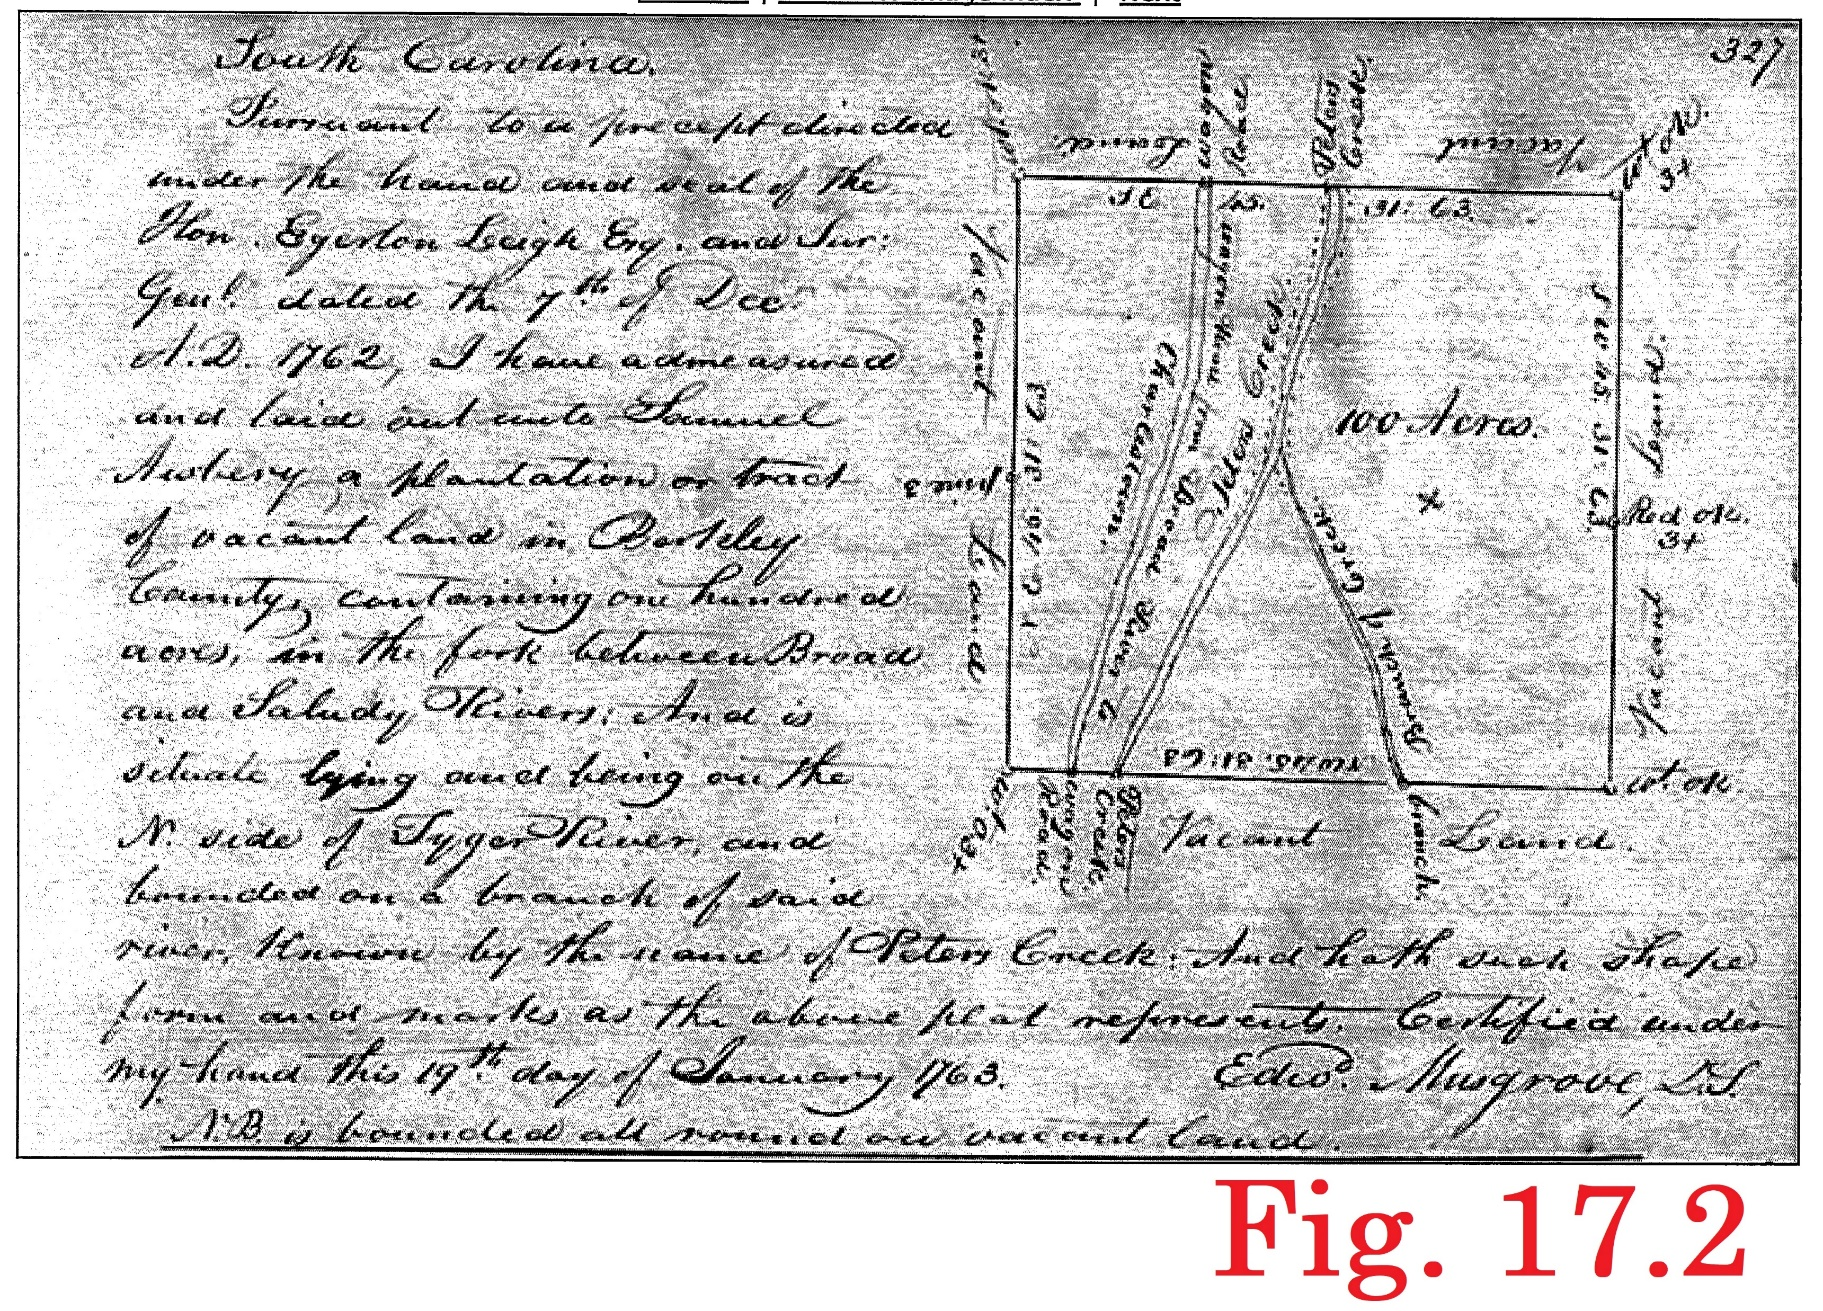 327
South Carolina.
Pursuant to a precept directed
under the hand and seal of the
Hon. Egerton Leigh Esq. and Sur:
Genl. dated the 7th of Dec:
A.D. 1762, I have admeasured
and laid out unto Samuel
Newbery a plantation or tract
of vacant land in Berkley
County, containing one hundred
acres, in the fork between Broad
and Saludy Rivers; And is
situate lying and being on the
N. side of Tyger River, and
bounded on a branch of said
river, Known by the name of Peters Creek: And hath such shape
form and marks as the above plat represents. Certified under
my hand this 19th day of January 1763. Edwd. Musgrove, D.S.
N.B. is bounded all round on vacant land.
Wagon
Road
Peters
Creek.
Land.
Vacant
45. 31: 63.
Vacant
Land
pine 3
Charlestown.
from Broad River to
Peters Creek
100 Acres.
x
Branch of Creek.
S W 45. 31: 63.
Land.
Red ok.
3x
Vacant
wt ok.
31:63
Wagon
Road.
Peters
Creek.
Vacant Land.
branch.
Fig. 17.2